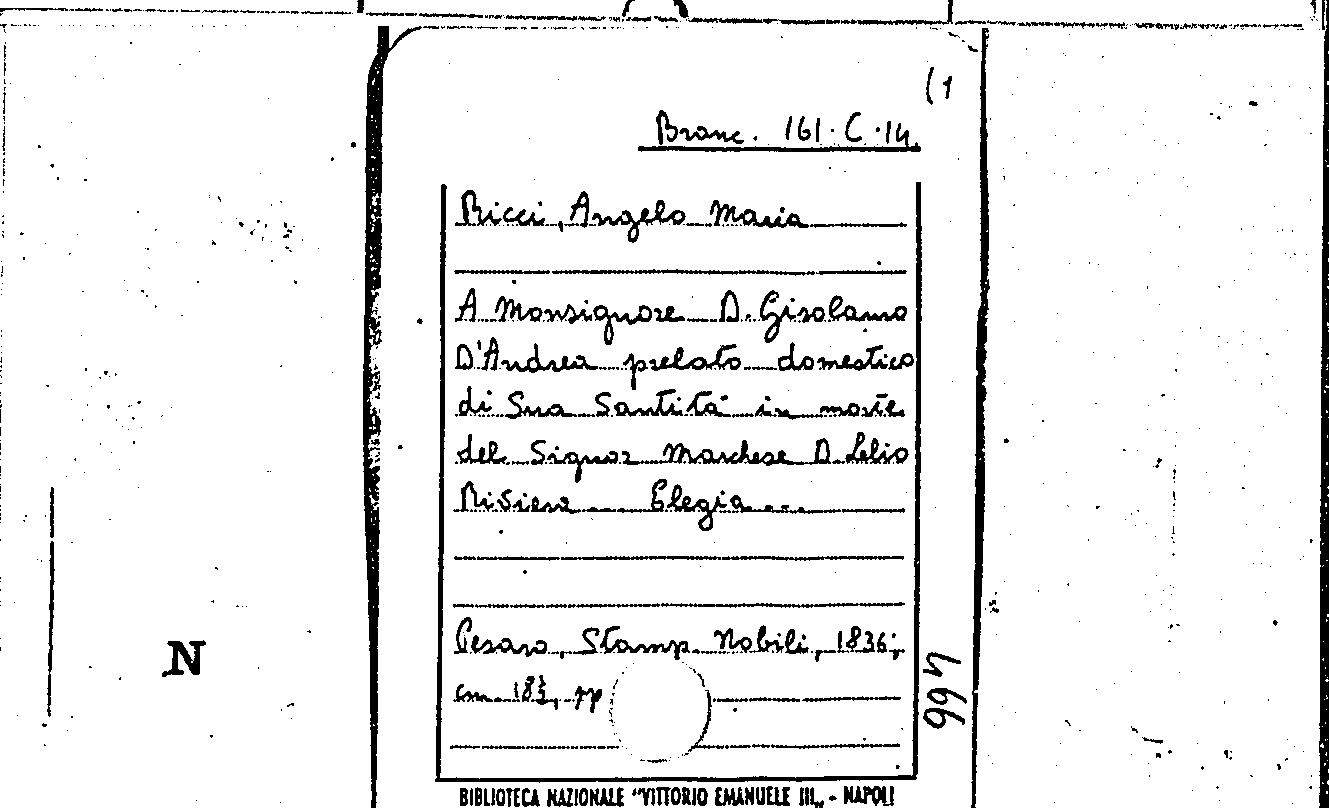 (1
Branc. 161. C. 14.
Ricci, Angelo Maria
A Monsignore D. Girolamo
D'Andrea prelato domestico
di Sua Santità in morte
del Signor Marchese D. Lelio
Rivera ... Elegia ...
Pesaro, Stamp. Nobili, 1836;
cm. 18½, pp
N
466
BIBLIOTECA NAZIONALE "VITTORIO EMANUELE III„ - NAPOLI